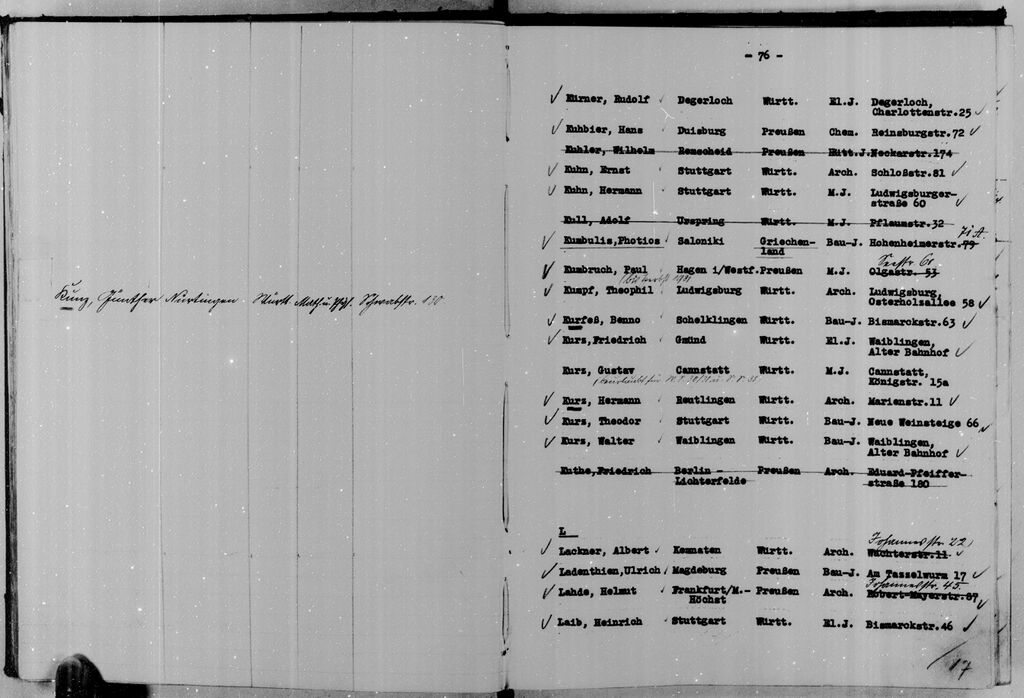 Kunz, Günther Nürtingen Württ. Math. u. Phys. Schwabstr. 130
- 76 -
Kürner, Rudolf Degerloch Württ. El.J. Degerloch,
Charlottenstr.25
Kuhbier, Hans Duisburg Preußen Chem. Reinsburgstr.72
Kuhler, Wilhelm Remscheid Preußen Hütt.J.Neckarstr.174
Kuhn, Ernst Stuttgart Württ. Arch. Schloßstr.81
Kuhn, Hermann Stuttgart Württ. M.J. Ludwigsburger-
straße 60
Kull, Adolf Urspring Württ. M.J. Pflaumstr.32
71 A.
Kumbulis,Photios Saloniki Griechen- Bau-J. Hohenheimerstr.79
land
Seestr. 61
Kumbruch, Paul Hagen i/Westf.Preußen M.J. Olgastr. 53
Kumpf, Theophil Ludwigsburg Württ. Arch. Ludwigsburg,
Osterholzallee 58
Kurfeß, Benno Schelklingen Württ. Bau-J. Bismarckstr.63
Kurz,Friedrich Gmünd Württ. El.J. Waiblingen,
Alter Bahnhof
Kurz, Gustav Cannstatt Württ. M.J. Cannstatt,
Königstr. 15a
Kurz, Hermann Reutlingen Württ. Arch. Marienstr.11
Kurz, Theodor Stuttgart Württ. Bau-J. Neue Weinsteige 66
Kurz, Walter Waiblingen Württ. Bau-J. Waiblingen,
Alter Bahnhof
Kuthe,Friedrich Berlin - Preußen Arch. Eduard-Pfeiffer-
Lichterfelde straße 180
L
Johannesstr. 22
Lackner, Albert Kemnaten Württ. Arch. Wächterstr.11
Ladenthien,Ulrich Magdeburg Preußen Bau-J. Am Tasselwurm 17
Johannesstr. 45.
Lahde, Helmut Frankfurt/M.- Preußen Arch. Robert-Mayerstr.87
Höchst
Laib, Heinrich Stuttgart Württ. El.J. Bismarckstr.46
17